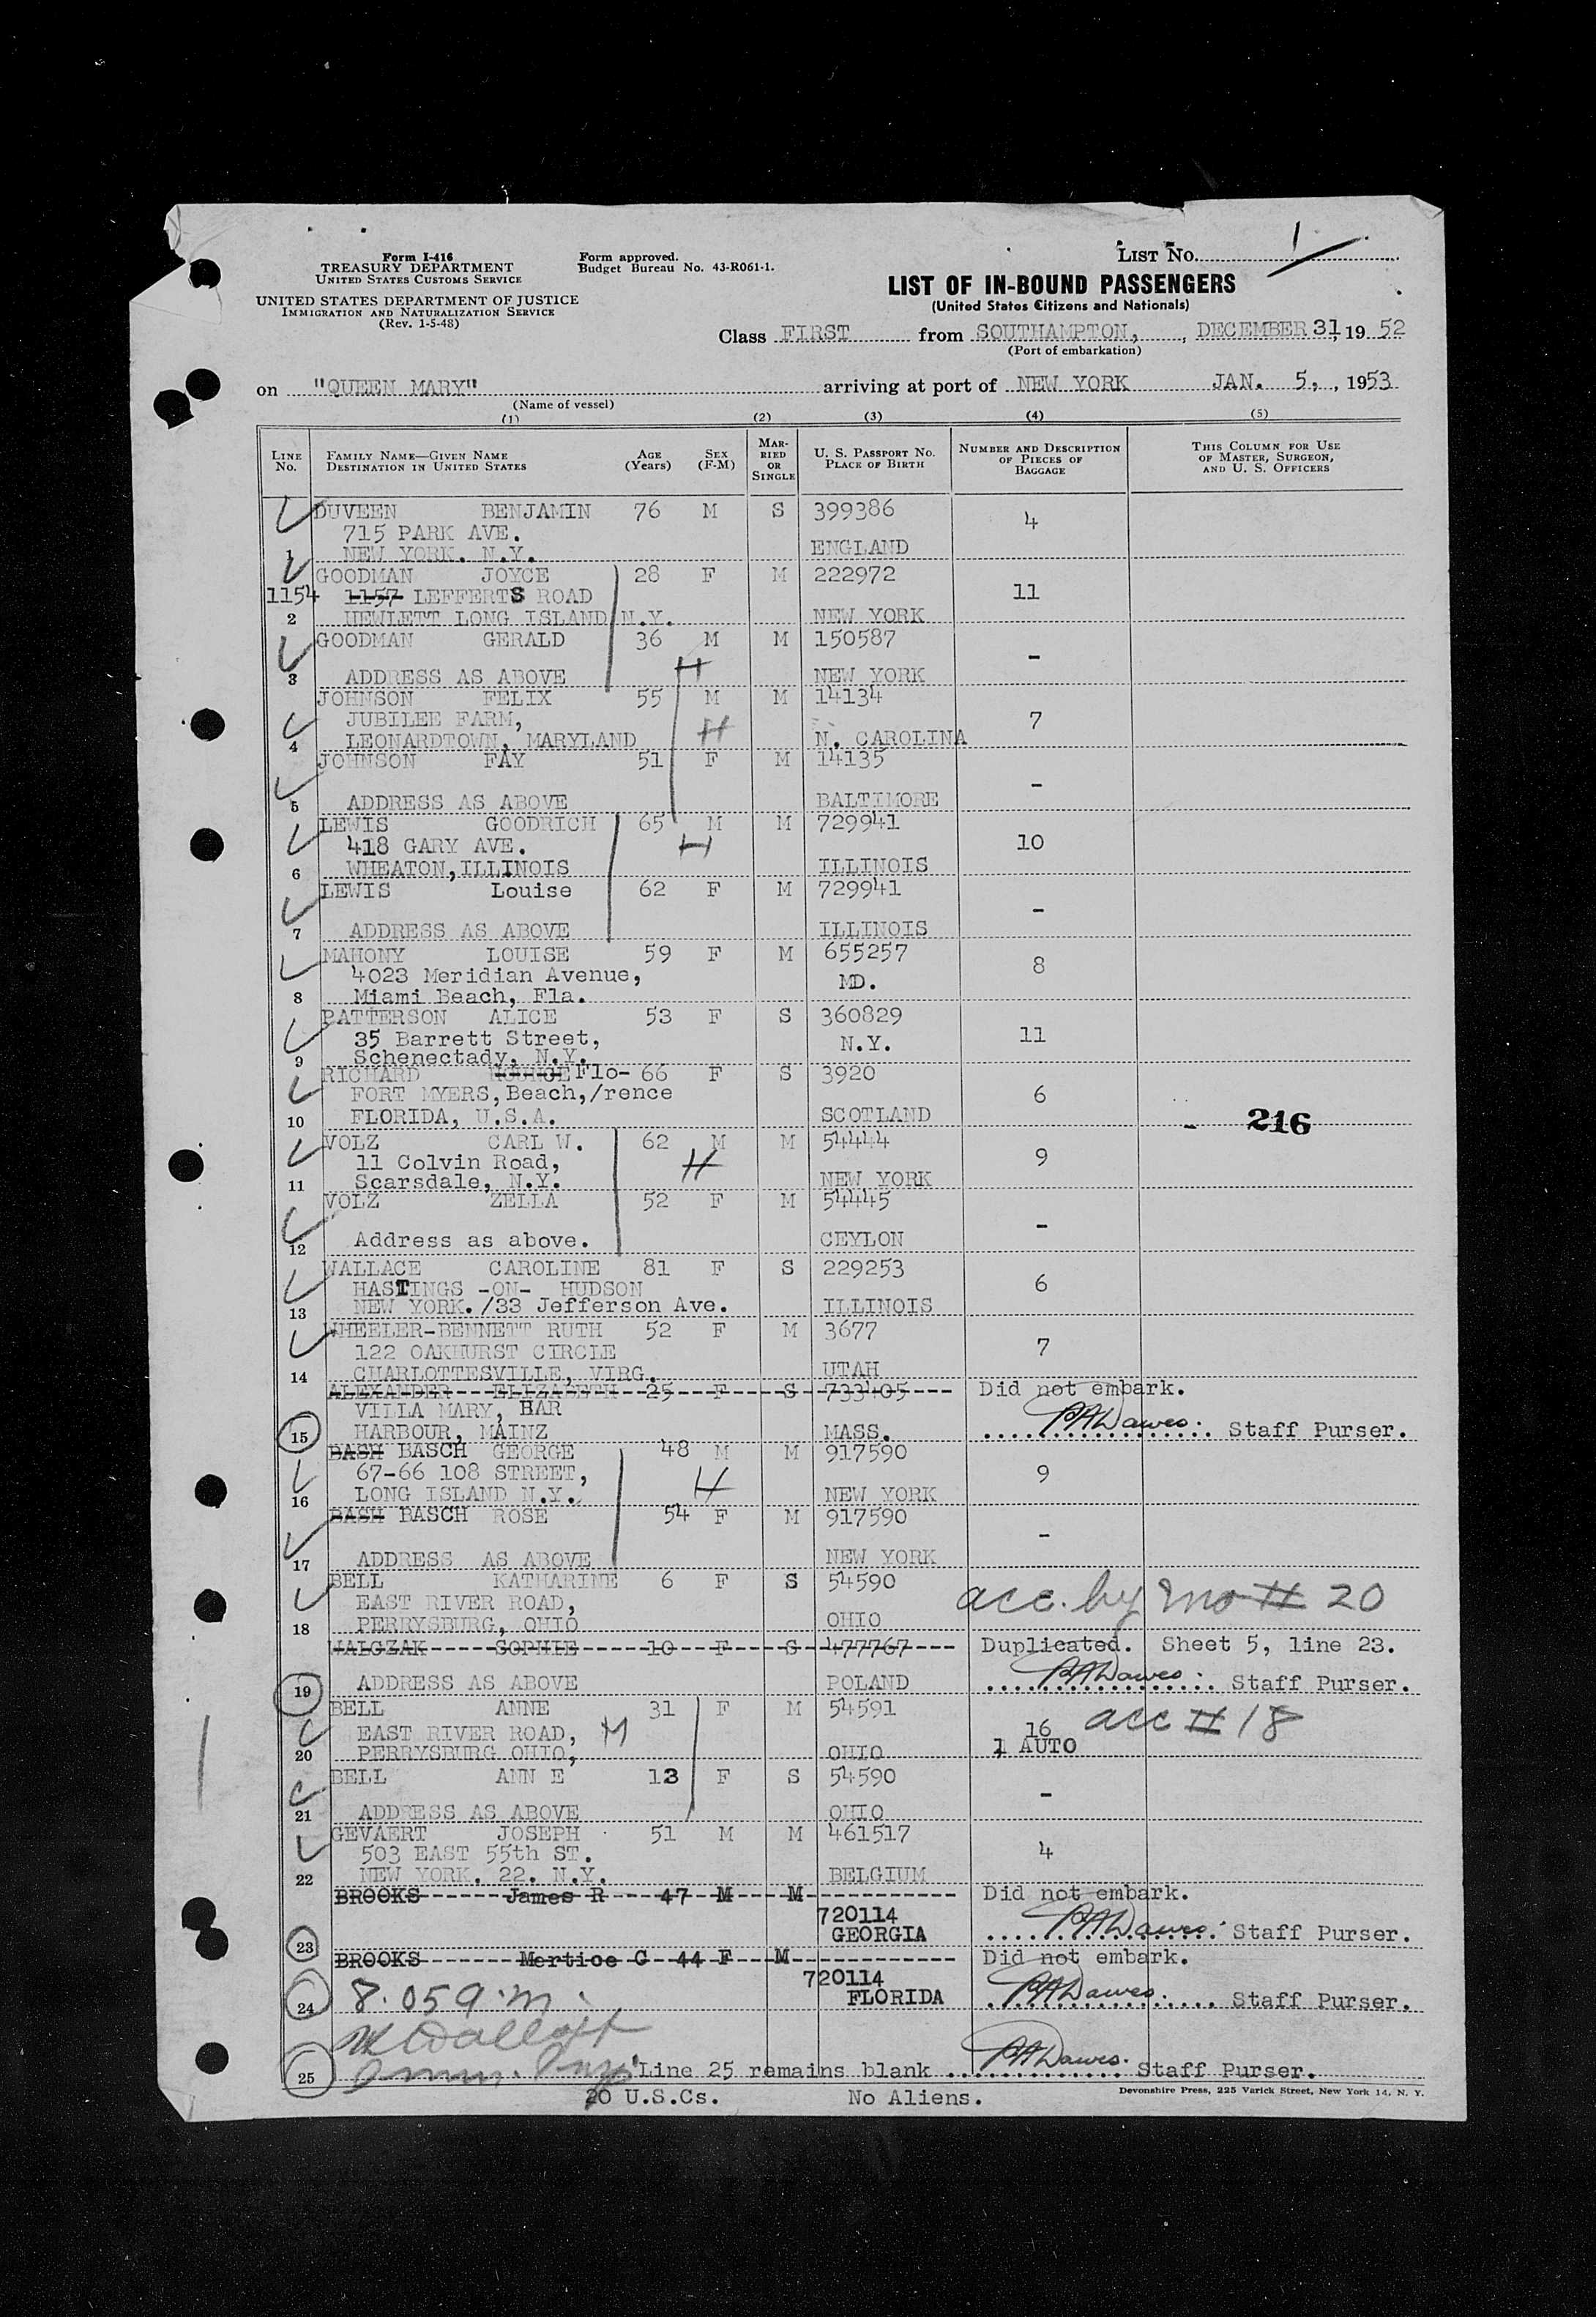 Form I-416
TREASURY DEPARTMENT
UNITED STATES CUSTOMS SERVICE
UNITED STATES DEPARTMENT OF JUSTICE
IMMIGRATION AND NATURALIZATION SERVICE
(Rev. 1-5-48)
Form approved.
Budget Bureau No. 43-R061-1.
LIST No. 1
LIST OF IN-BOUND PASSENGERS
(United States Citizens and Nationals)
Class FIRST from SOUTHAMPTON, , DECEMBER 31, 19 52
(Port of embarkation)
on "QUEEN MARY" arriving at port of NEW YORK JAN. 5, , 1953
(Name of vessel)
(1) (2) (3) (4) (5)
LINE No. FAMILY NAME—GIVEN NAME DESTINATION IN UNITED STATES AGE (Years) SEX (F-M) MARRIED OR SINGLE U. S. PASSPORT No. PLACE OF BIRTH NUMBER AND DESCRIPTION OF PIECES OF BAGGAGE THIS COLUMN FOR USE OF MASTER, SURGEON, AND U. S. OFFICERS
DUVEEN BENJAMIN 76 M S 399386 4
715 PARK AVE.
1 NEW YORK. N.Y. ENGLAND
GOODMAN JOYCE 28 F M 222972 11
1154 1157 LEFFERTS ROAD
2 HEWLETT LONG ISLAND N.Y. NEW YORK
GOODMAN GERALD 36 M M 150587 -
H
3 ADDRESS AS ABOVE NEW YORK
JOHNSON FELIX 55 M M 14134 7
JUBILEE FARM, H
4 LEONARDTOWN, MARYLAND N. CAROLINA
JOHNSON FAY 51 F M 14135 -
5 ADDRESS AS ABOVE BALTIMORE
LEWIS GOODRICH 65 M M 729941 10
418 GARY AVE. H
6 WHEATON, ILLINOIS ILLINOIS
LEWIS Louise 62 F M 729941 -
7 ADDRESS AS ABOVE ILLINOIS
MAHONY LOUISE 59 F M 655257 8
4023 Meridian Avenue, MD.
8 Miami Beach, Fla.
PATTERSON ALICE 53 F S 360829 11
35 Barrett Street, N.Y.
9 Schenectady, N.Y.
RICHARD Flo- 66 F S 3920 6
FORT MYERS, Beach, /rence
10 FLORIDA, U.S.A. SCOTLAND - 216
VOLZ CARL W. 62 M M 54444 9
11 Colvin Road, H
11 Scarsdale, N.Y. NEW YORK
VOLZ ZELLA 52 F M 54445 -
12 Address as above. CEYLON
WALLACE CAROLINE 81 F S 229253 6
HASTINGS -ON- HUDSON
13 NEW YORK. /33 Jefferson Ave. ILLINOIS
WHEELER-BENNETT RUTH 52 F M 3677 7
122 OAKHURST CIRCLE
14 CHARLOTTESVILLE, VIRG. UTAH
ALEXANDER ELIZABETH 25 F S 733405 Did not embark.
VILLA MARY, BAR
15 HARBOUR, MAINZ MASS. PA Dawes. Staff Purser.
BASH BASCH GEORGE 48 M M 917590 9
67-66 108 STREET, H
16 LONG ISLAND N.Y. NEW YORK
BASH BASCH ROSE 54 F M 917590 -
17 ADDRESS AS ABOVE NEW YORK
BELL KATHARINE 6 F S 54590 acc. by mo # 20
EAST RIVER ROAD,
18 PERRYSBURG, OHIO OHIO
WALCZAK SOPHIE 10 F S 477767 Duplicated. Sheet 5, line 23.
19 ADDRESS AS ABOVE POLAND PA Dawes. Staff Purser.
BELL ANNE 31 F M 54591
EAST RIVER ROAD, M 16 acc # 18
20 PERRYSBURG OHIO, OHIO 1 AUTO
BELL ANN E 13 F S 54590 -
21 ADDRESS AS ABOVE OHIO
GEVAERT JOSEPH 51 M M 461517 4
503 EAST 55th ST.
22 NEW YORK. 22. N.Y. BELGIUM
BROOKS James R 47 M M Did not embark.
720114
23 GEORGIA PA Dawes. Staff Purser.
BROOKS Mertice C 44 F M Did not embark.
720114
24 8.05 a.m. FLORIDA PA Dawes. Staff Purser.
25 Line 25 remains blank PA Dawes. Staff Purser.
20 U.S.Cs. No Aliens.
Devonshire Press, 225 Varick Street, New York 14, N. Y.